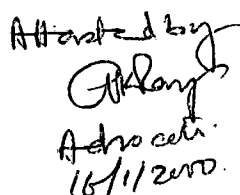 Attested by
Advocate.
16/1/2000.